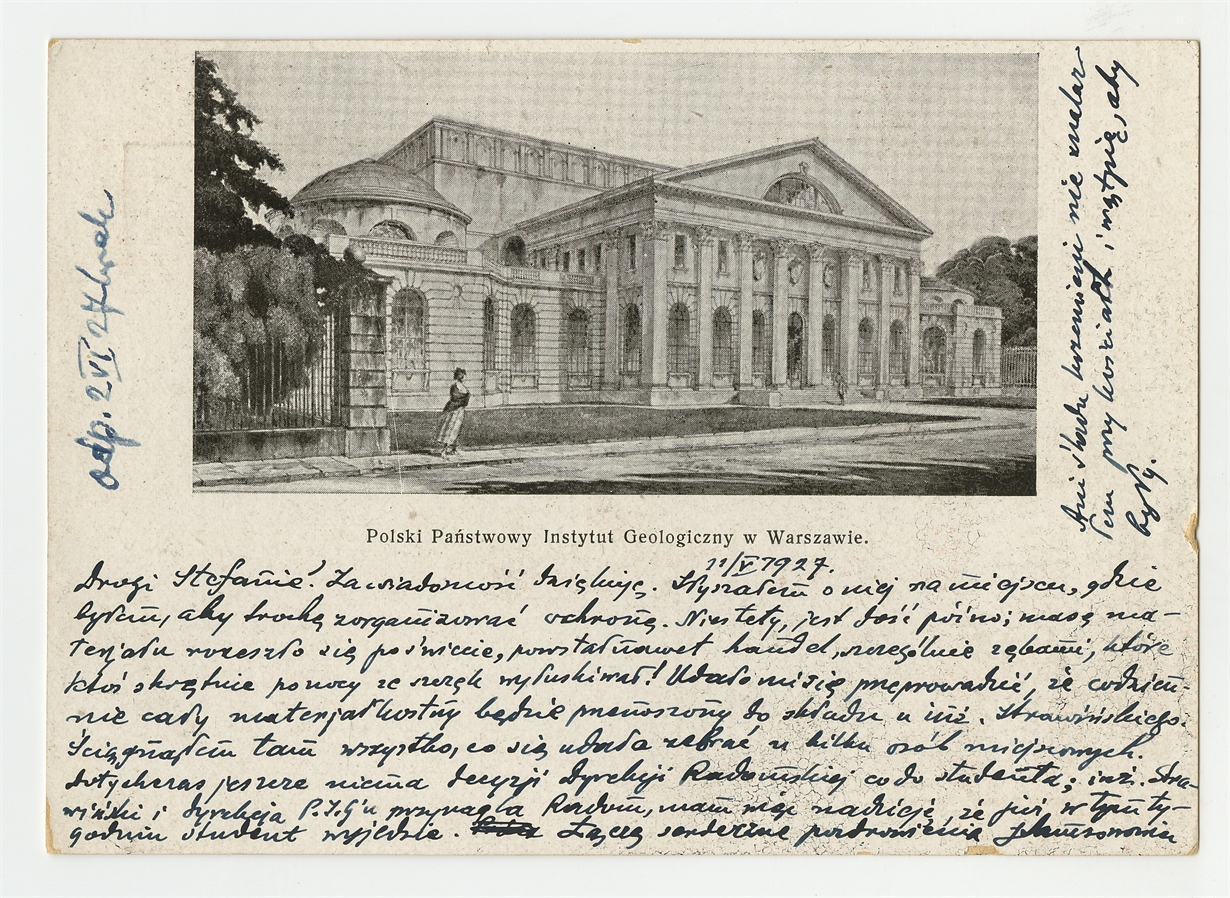 Polski Państwowy Instytut Geologiczny w Warszawie.
11/V 1927.
Drogi Stefanie! Za wiadomość dziękuję. Słyszałem o niej na miejscu, gdzie
byłem, aby trochę zorganizować ochronę. Niestety, jest dość późno; masę ma-
terjału rozeszło się po świecie, powstał nawet handel, szczególnie zębami, które
ktoś skrzętnie po nocy ze szczęk wyłuskiwał! Udało mi się przeprowadzić, że codzien-
nie cały materjał kostny będzie przenoszony do składu u inż. Strawińskiego.
Ściągnąłem tam wszystko, co się udało zebrać u kilku osób miejscowych.
Dotychczas jeszcze niema decyzji Dyrekcji Radomskiej co do studenta; inż. Stra-
wiński i Dyrekcja P.I.G'u przynagla Radom, mam więc nadzieję, że już w tym ty-
godniu student wyjedzie. Łączę serdeczne pozdrowienia
Ani śladu krzemieni nie znalaz-
łem przy kościach i wątpię, aby
były.
odp. 2 VI 27